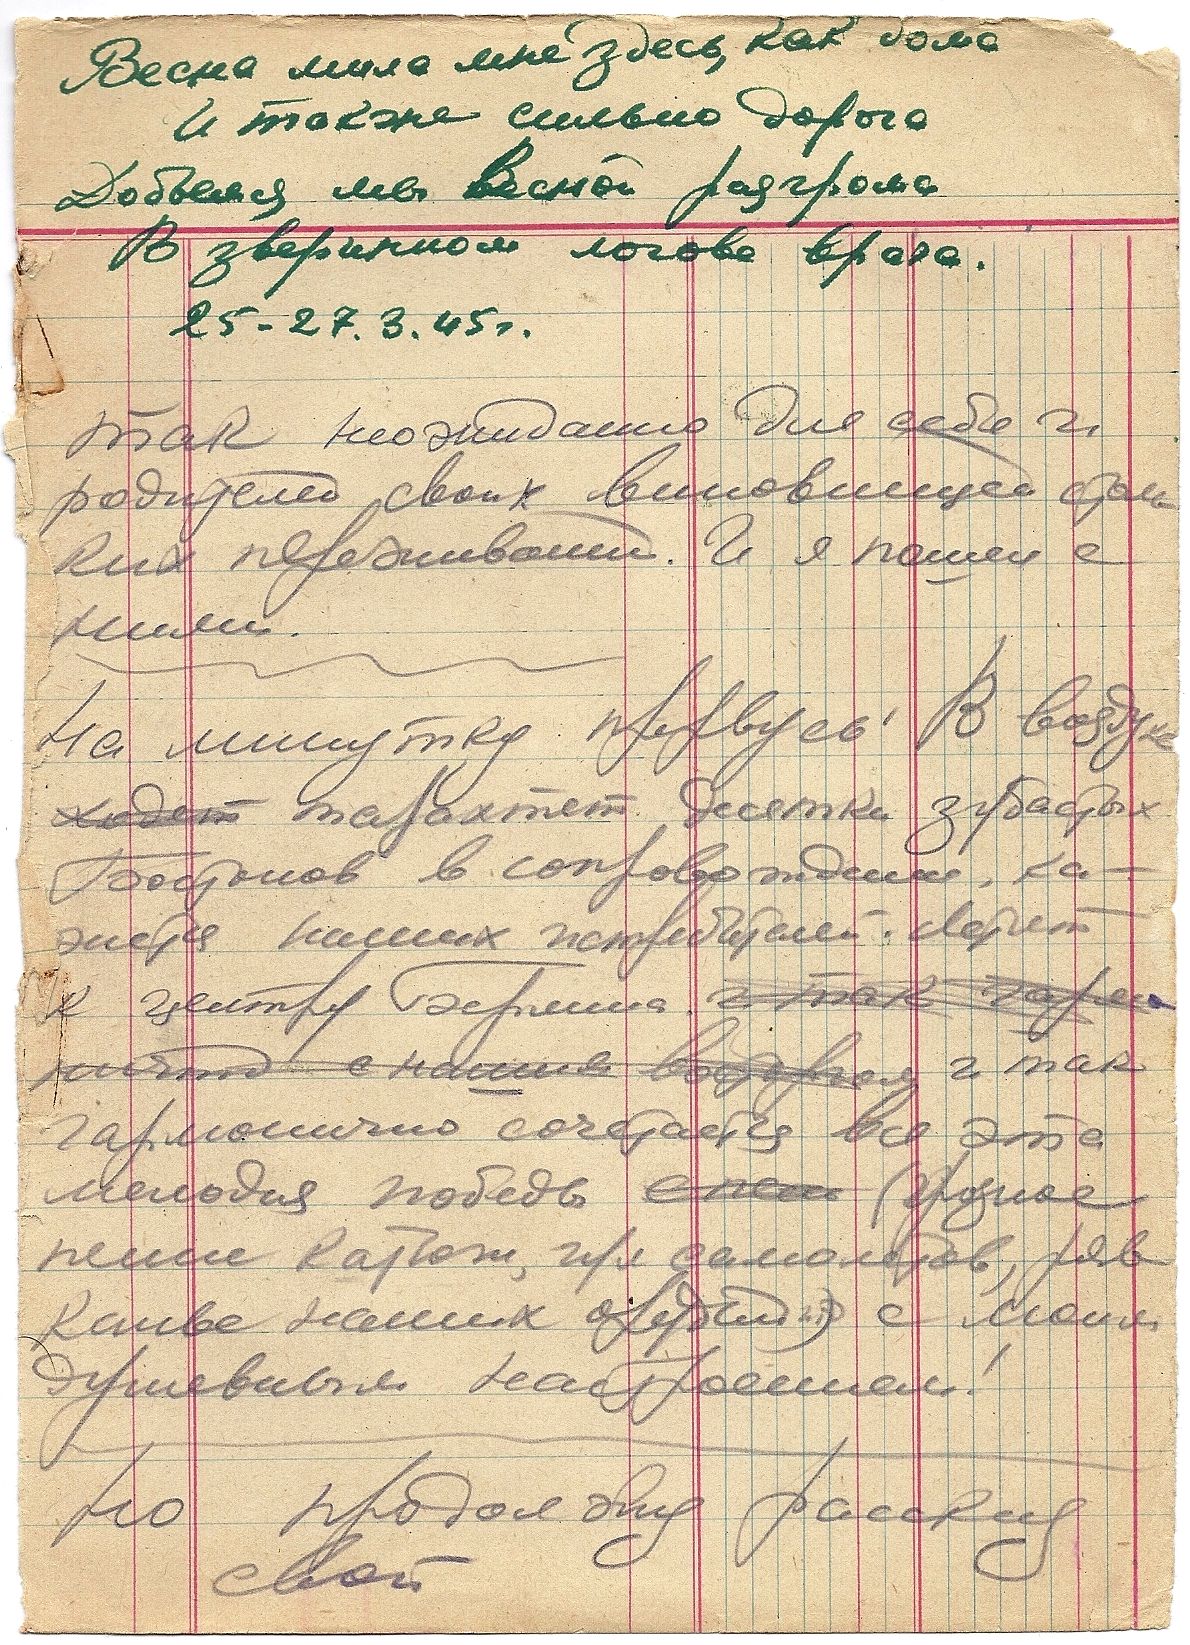 Весна мила мне здесь, как дома
И также сильно дорога
Добьемся мы Весной разгрома
В зверином логове врага.
25-27.3.45г.
так неожиданно для себя и
родителей своих виновницей столь-
ких переживаний. И я пошел с
ними.
На минутку прервусь! В воздухе
ходят тарахтят десятки зубастых
Бостонов в сопровождении, ка-
жется наших истребителей. Летят
к центру Берлина. и так гармо
нично с нашим и так
гармонично сочетается вся эта
мелодия победы с пен (грозное
пение Катюш, гул самолетов, ряв
канье наших орудий) с моим
душевным настроением!
Но продолжу рассказ
свой